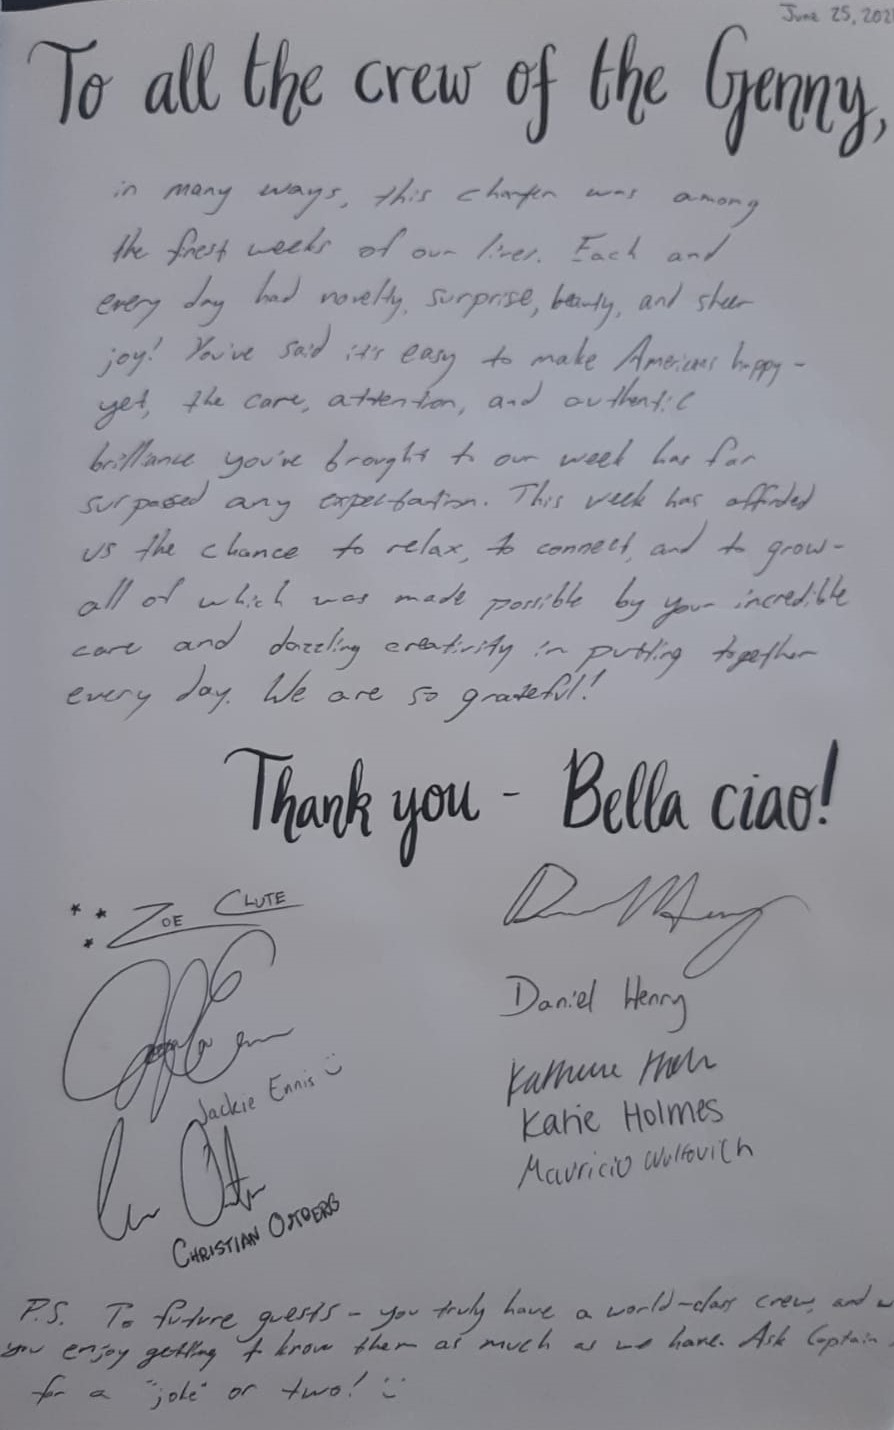 June 25, 202
To all the crew of the Genny,
in many ways, this charter was among
the finest weeks of our lives. Each and
every day had novelty, surprise, beauty, and sheer
joy! You've said it's easy to make Americans happy -
yet, the care, attention, and authentic
brilliance you've brought to our week has far
surpassed any expectation. This week has afforded
us the chance to relax, to connect, and to grow-
all of which was made possible by your incredible
care and dazzling creativity in putting together
every day. We are so grateful!
Thank you - Bella ciao!
Zoe Clute
Daniel Henry
Jackie Ennis :)
Katie Holmes
Mauricio Wulfovich
CHRISTIAN OSTBERG
P.S. To future guests - you truly have a world-class crew, and
you enjoy getting to know them as much as we have. Ask Captain
for a "joke" or two! :)